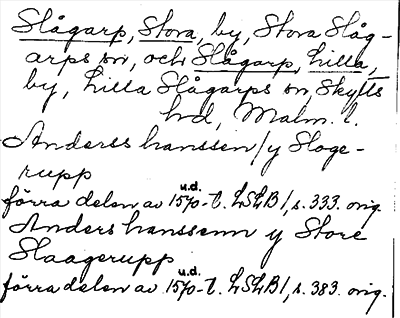 Slågarp, Stora, by, Stora Slåg-
arps sn, och Slågarp, Lilla,
by, Lilla Slågarps sn, Skytts
hd, Malm. l.
Anderss hanssen / y Sloge-
rupp
u.d.
förra delen av 1570-t. LSLB 1, s. 333. orig.
Anders hanssenn y Store
Slaagerupp
u.d.
förra delen av 1570-t. LSLB 1, s. 383. orig.